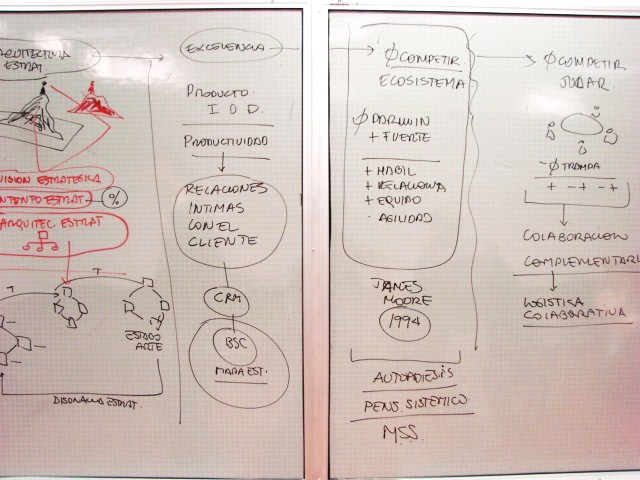 ARQUITECTURA
ESTRAT.
VISION ESTRATEGICA
INTENTO ESTRAT
%
ARQUITEC. ESTRAT
T
T
ESTADO
ARTE
DISONALLO ESTRAT.
EXCELENCIA
PRODUCTO
I O D.
PRODUCTIVIDAD
RELACIONES
INTIMAS
CON EL
CLIENTE
CRM
BSC
MAPA EST.
Ø COMPETIR
ECOSISTEMA
Ø DARWIN
+ FUERTE
+ HABIL
+ RELACIONA
+ EQUIDO
- AGILIDAD
JAMES
MOORE
1994
PENS. SISTEMICO
MSS.
Ø COMPETIR
JUGAR
- Ø TRAMPA
+ - + - +
COLABORACION
COMPLEMENTARI
LOGISTICA
COLABORATIVA